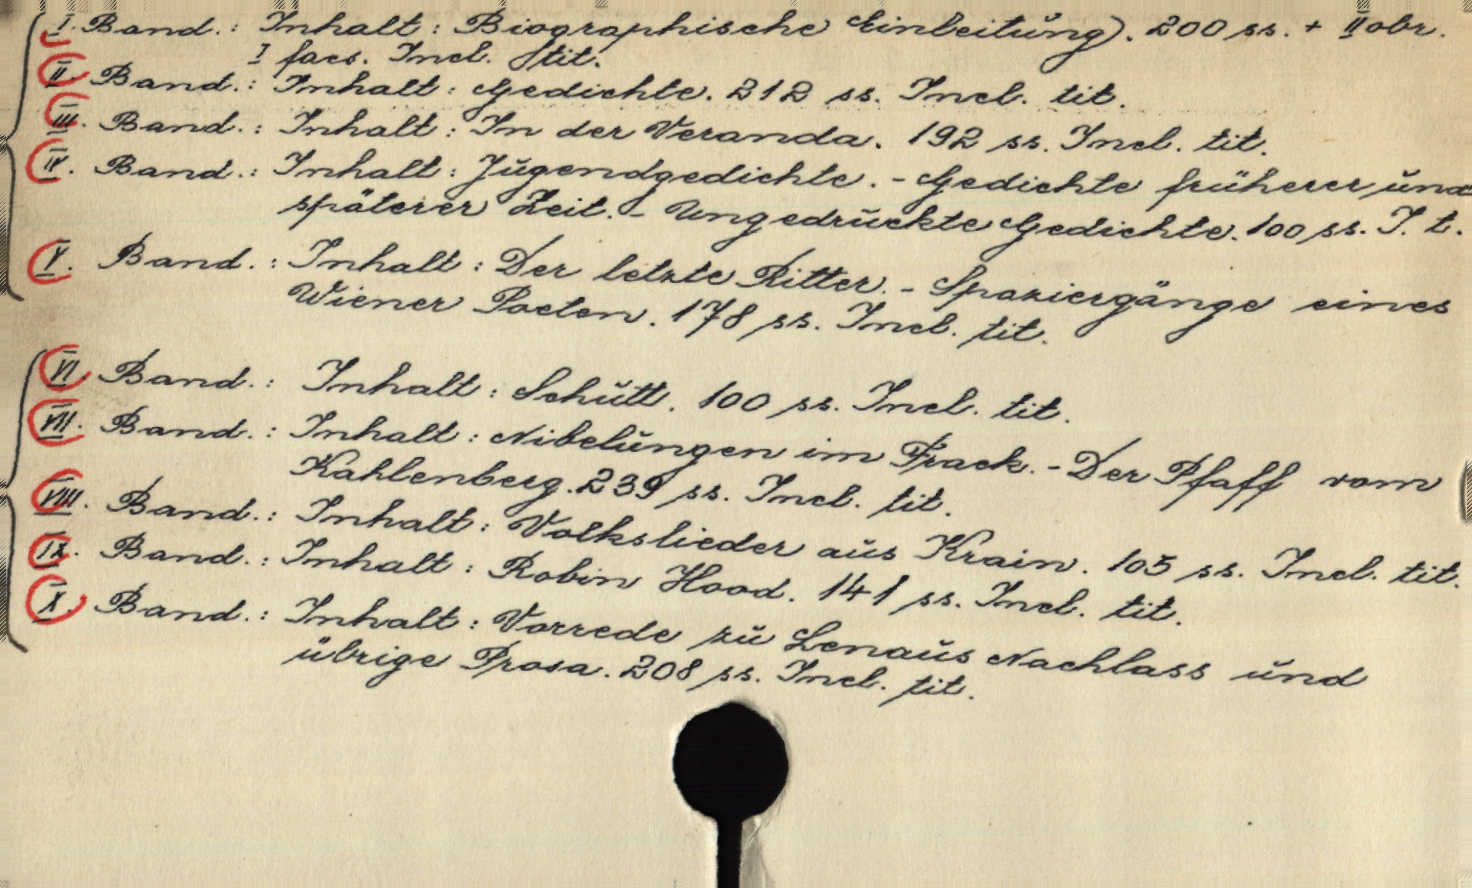 I. Band.: Inhalt: Biographische Einleitung). 200 ss. + II obr.
I facs. Incl. tit.
II. Band.: Inhalt: Gedichte. 212 ss. Incl. tit.
III. Band.: Inhalt: In der Veranda. 192 ss. Incl. tit.
IV. Band.: Inhalt: Jugendgedichte. - Gedichte früherer und
späterer Zeit. - Ungedruckte Gedichte. 100 ss. I. t.
V. Band.: Inhalt: Der letzte Ritter. - Spaziergänge eines
Wiener Poeten. 178 ss. Incl. tit.
VI. Band.: Inhalt: Schutt. 100 ss. Incl. tit.
VII. Band.: Inhalt: Nibelungen im Frack. - Der Pfaff vom
Kahlenberg. 239 ss. Incl. tit.
VIII. Band.: Inhalt: Volkslieder aus Krain. 105 ss. Incl. tit.
IX. Band.: Inhalt: Robin Hood. 141 ss. Incl. tit.
X. Band.: Inhalt: Vorrede zu Lenaus Nachlass und
übrige Prosa. 208 ss. Incl. tit.